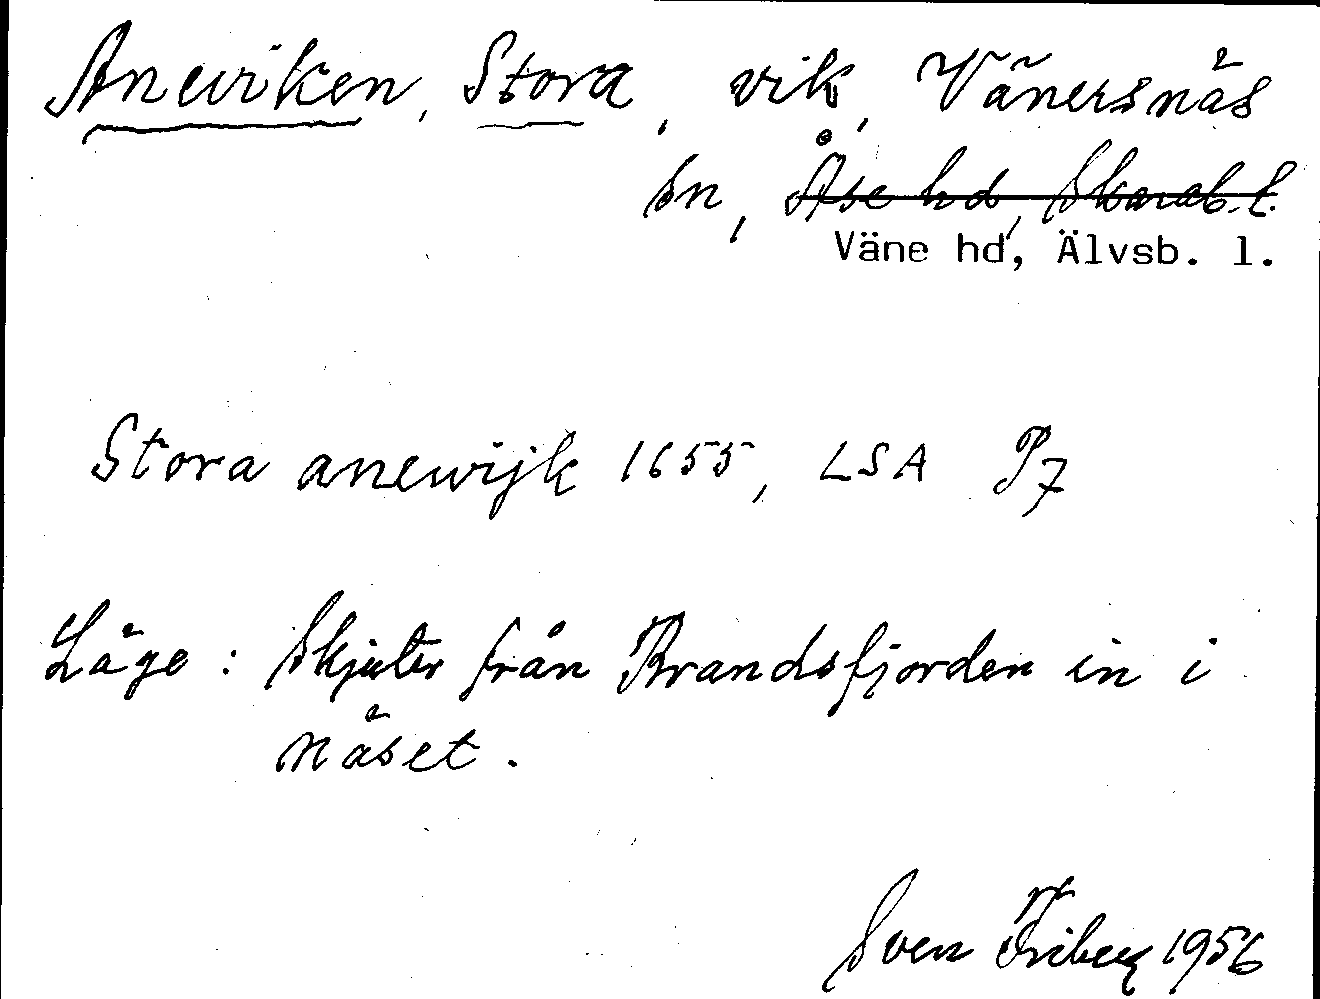 Aneviken, Stora, vik, Vänersnäs
sn, Åse hd, Skarab. l.
Väne hd, Älvsb. l.
Stora anewijk 1655, LSA P7
Läge: Skjuter från Brandsfjorden in i
näset.
Sven Friberg 1956